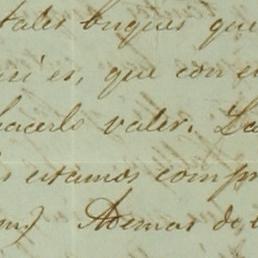 tales buques que
así es, que con e
hacerlo valer. La
s estamos comp
Ademas de